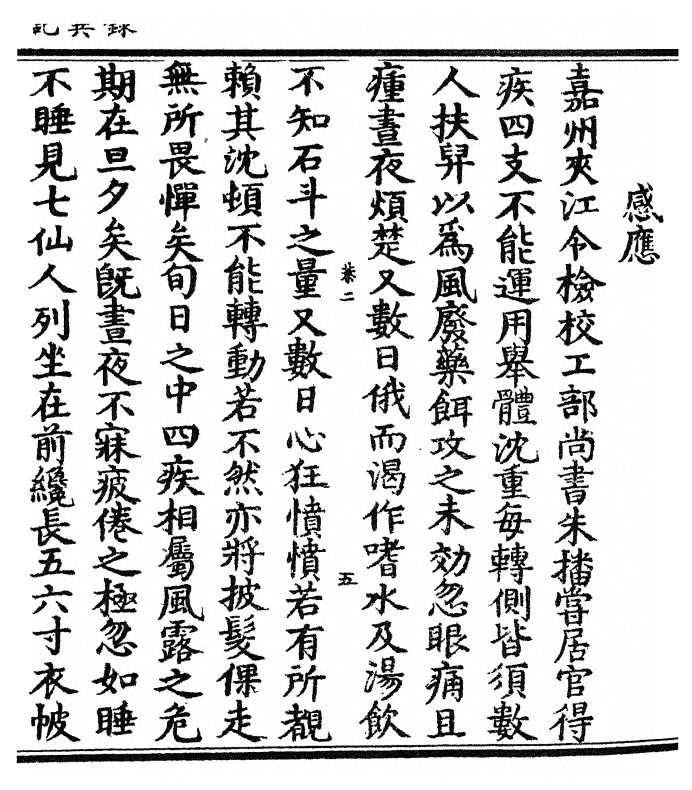 感應
嘉州夾江令檢校工部尚書朱播嘗居官得
疾四支不能運用舉體沈重每轉側皆須數
人扶舁以爲風廢藥餌攻之未効忽眼痛且
瘇晝夜煩楚又數日俄而渴作嗜水及湯飲
卷二
五
不知石斗之量又數日心狂憤憤若有所覩
賴其沈頓不能轉動若不然亦將披髮倮走
無所畏憚矣旬日之中四疾相屬風露之危
期在旦夕矣旣晝夜不寐疲倦之極忽如睡
不睡見七仙人列坐在前纔長五六寸衣帔